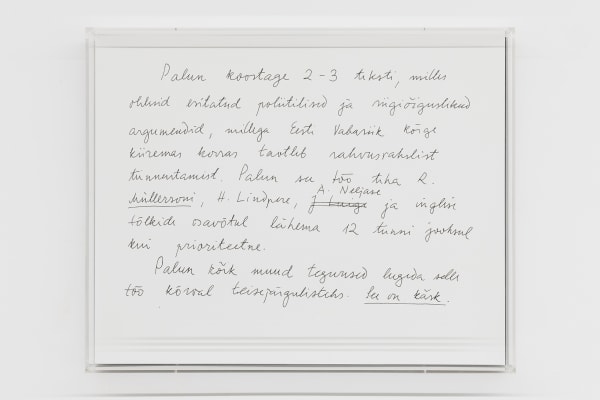 Palun koostage 2-3 teksti, milles
oleksid esitatud poliitilised ja riigiõiguslikud
argumendid, millega Eesti Vabariik kõige
kiiremas korras taotleb rahvusvahelist
tunnustamist. Palun see töö teha R.
Müllersoni, H. Lindpere, A. Neljase
ja inglise
tõlkide osavõtul lähema 12 tunni jooksul
kui prioriteetne.
Palun kõik muud tegevused lugeda selle
töö kõrval teisejärgulisteks. See on käsk.